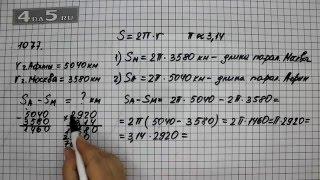 4DA5.RU
1077.
r г.Афины = 5040 км
r г.Москва = 3580 км
SA - SM = ? км
5040
3580
1460
2920
S = 2π·r π ≈ 3,14
1) SM = 2π·3580 - длина парал Москва
2) SA = 2π·5040 - длина парал Афин
SA - SM = 2π·5040 - 2π·3580 =
= 2π(5040 - 3580) = 2π·1460 = π·2920 =
= 3,14·2920 =